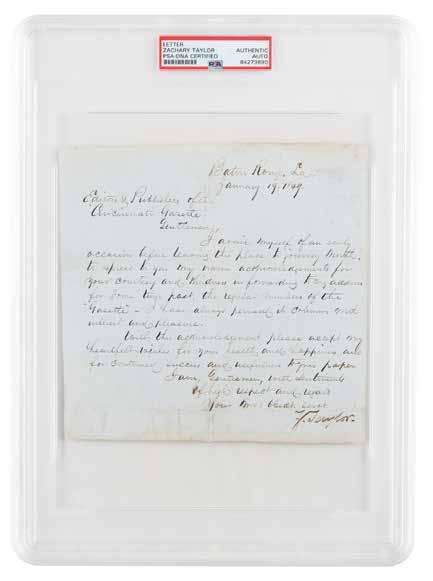 LETTER
ZACHARY TAYLOR
PSA/DNA CERTIFIED
AUTHENTIC
AUTO
PSA
84279690
Baton Rouge, La.
January 19, 1849.
Editors & Publishers of the
Cincinnati Gazette.
Gentlemen,
I avail myself of an early
occasion before leaving this place to journey North,
to express to you my warm acknowledgements for
your courtesy and kindness in forwarding to my address
for some time past, the regular numbers of the
Gazette – I have always perused its columns with
interest and pleasure.
With this acknowledgement please accept my
heartfelt wishes for your health, and happiness, and
for continued success and usefulness to your paper
I am, Gentlemen, with sentiments
of high respect and regard
Your most obedt. servt.
Z. Taylor.